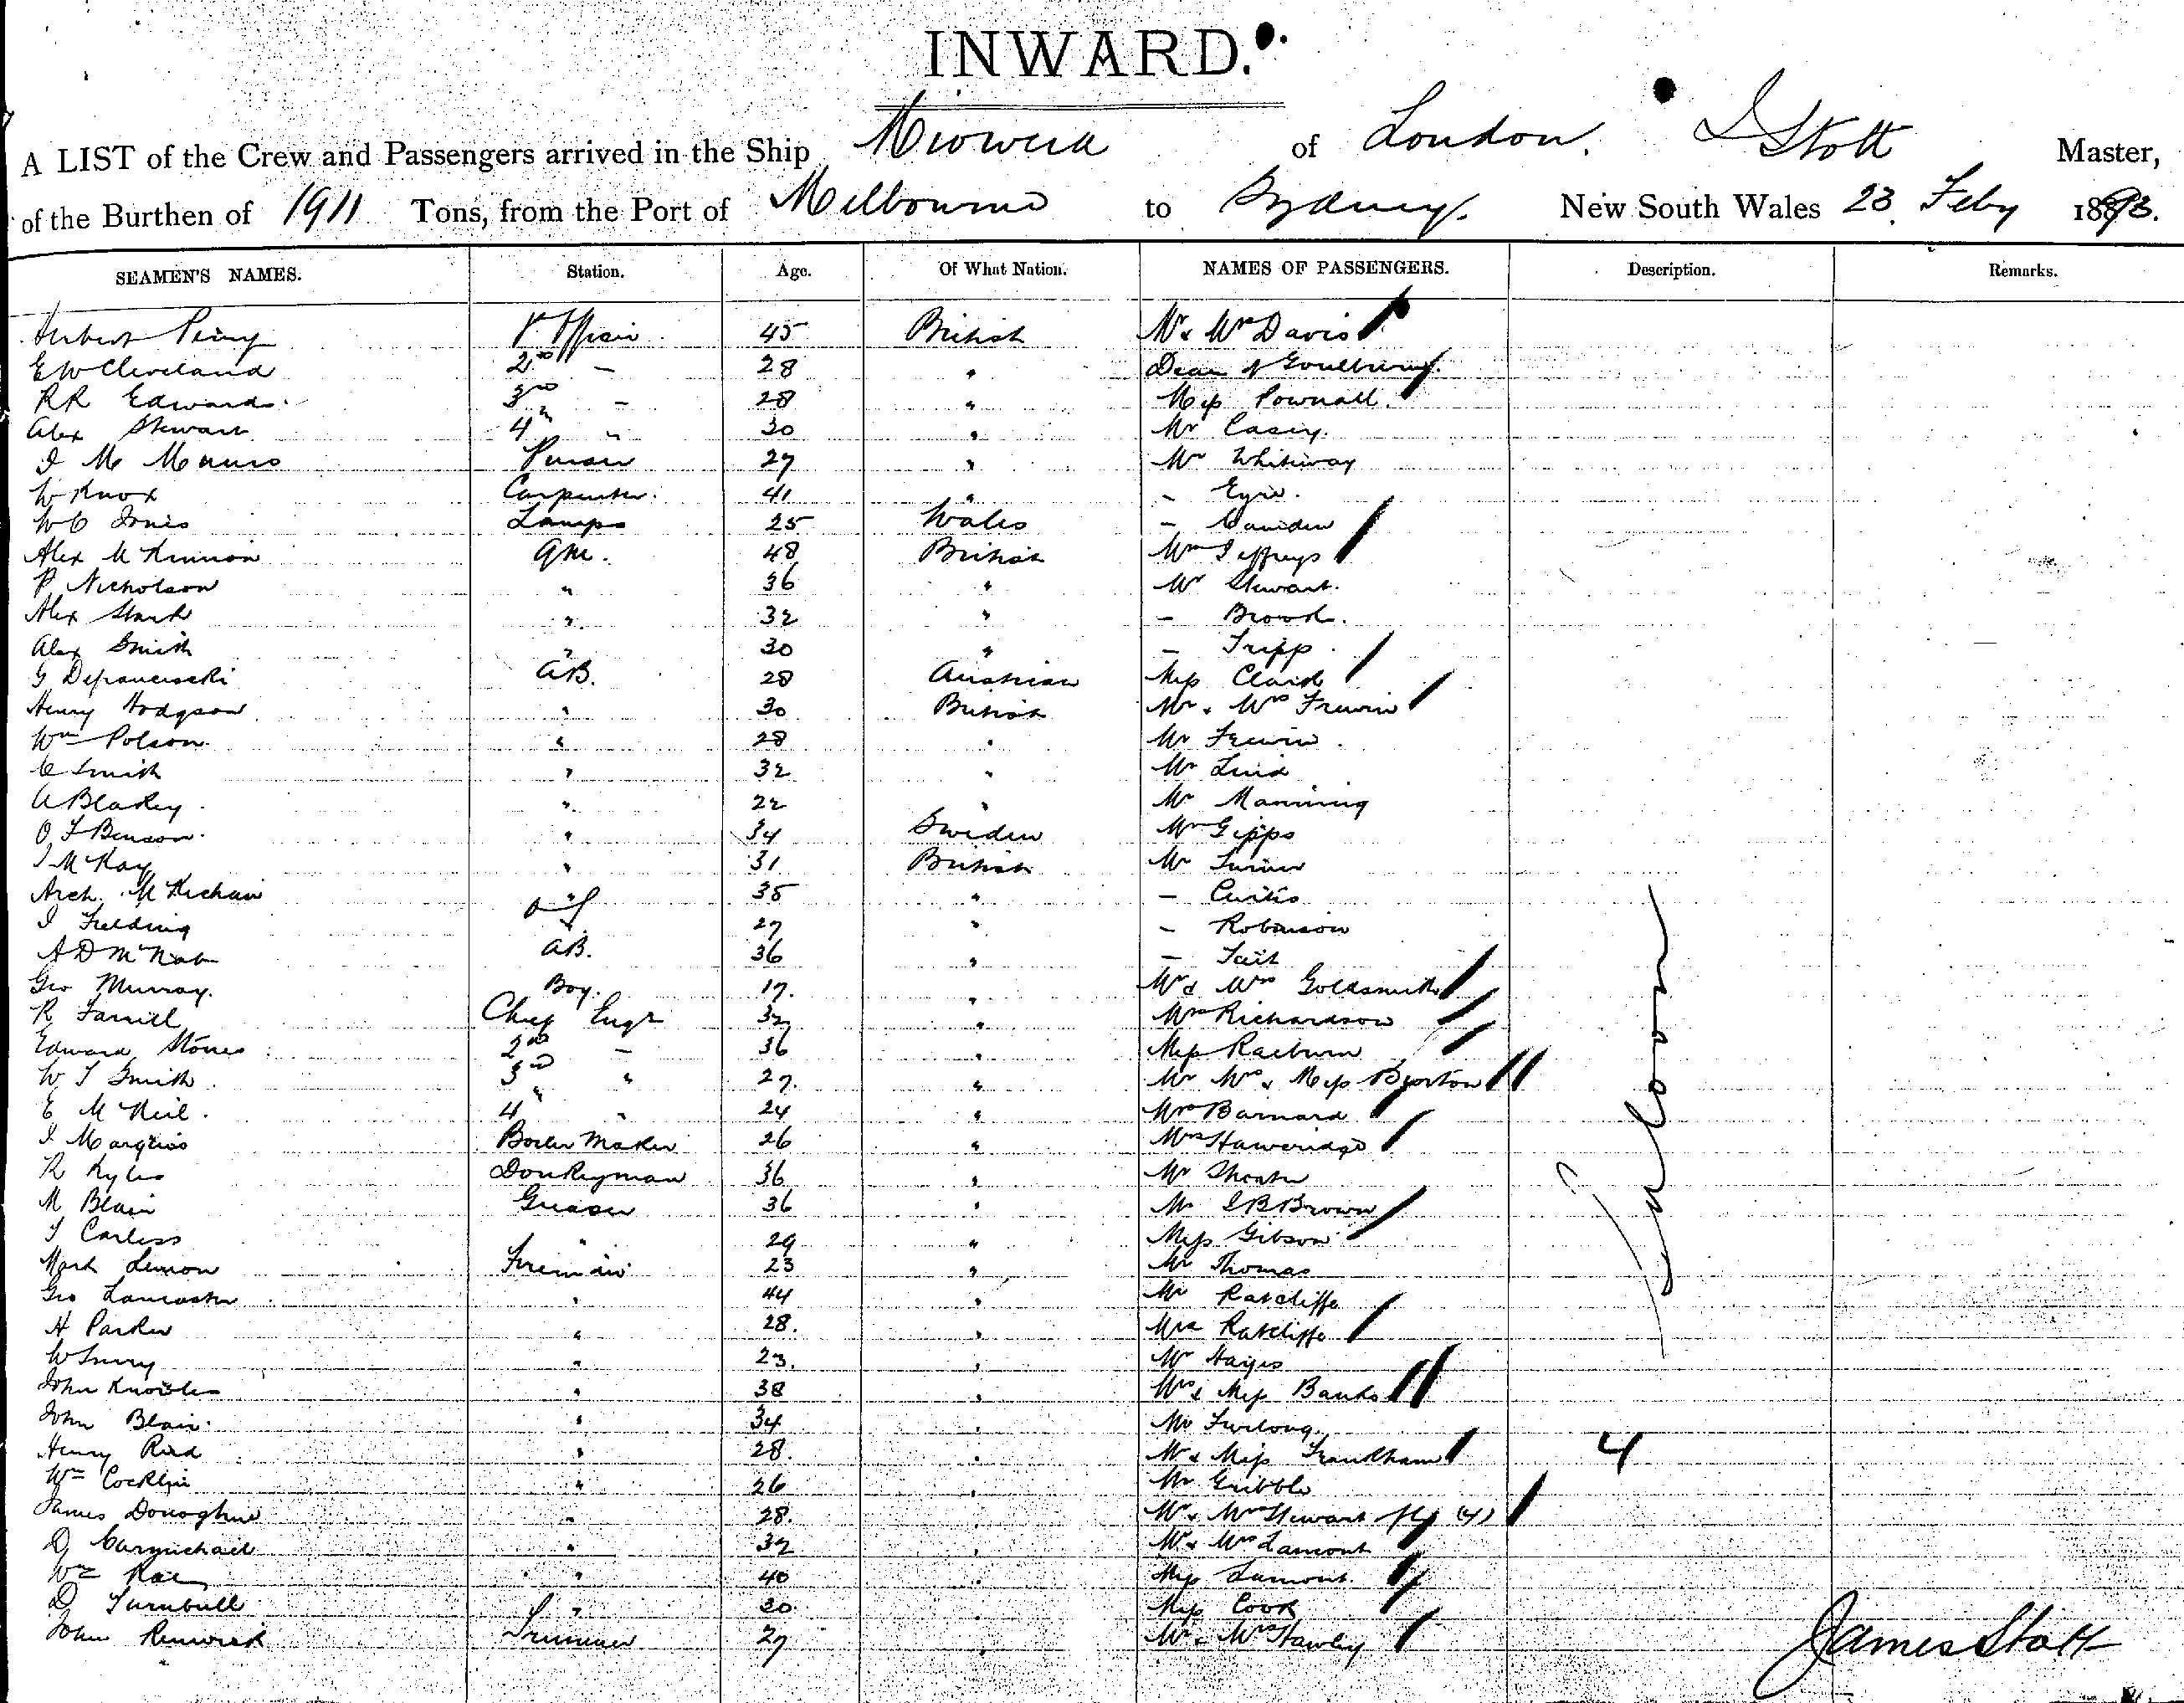 INWARD.
A LIST of the Crew and Passengers arrived in the Ship Miowera of London. J Stott Master,
of the Burthen of 1911 Tons, from the Port of Melbourne to Sydney. New South Wales 23 Feby 1893.
SEAMEN'S NAMES. Station. Age. Of What Nation. NAMES OF PASSENGERS. Description. Remarks.
Herbert Perry 1st Officer 45 British Mr & Mrs Davis
E W Cleveland 2nd — 28 " Dean of Goulburn
R R Edwards 3rd — 28 " Miss Pownall
Alex Stewart 4 " " 30 " Mr Casey
J M Munro Purser 27 " Mr Whiteway
W Knox Carpenter 41 " - Eyre.
W C Jones Lamps 25 Wales - Camden
Alex McKinnon QM. 48 British Mrs Jeffreys
P Nicholson " 36 " Mr Stewart.
Alex Stark " 32 " - Brook.
Alex Smith " 30 " - Tripp.
G Defranceschi AB. 28 Austrian Miss Clark
Henry Hodgson " 30 British Mr & Mrs Frewin
Wm Polson " 28 " Mr Frewin.
C Smith " 32 " Mr Lind
A Blakey " 22 " Mr Manning
O F Benson " 34 Sweden Mrs Gipps
J McKay " 31 British Mr Turner
Arch. McKechnie " 35 " - Curtis
J Fielding 27 " - Robinson
A D McNab AB. 36 " - Tait
Geo Murray. Boy. 17. " Mr & Mrs Goldsmith
R Farrell Chief Engr 32 " Mrs Richardson
Edward Stones 2nd — 36 " Miss Raeburn
W T Smith 3rd " 27. " Mr Mrs & Miss
E McNeil. 4 " " 24 " Mrs Barnard
J Marquis Boiler Maker 26 "
R Kyles Donkeyman 36 " Mr
M Blair Greaser 36 " Mr J B Brown
T Carless " 29 " Miss Gibson
Mark Lemon Fireman 23 " Mr Thomas
Geo Lancaster " 44 " Mr Ratcliffe
H Parker " 28. " Mrs Ratcliffe
W " 23. " Mr Hayes
John Knowles " 38 " Mrs & Miss Banks
John Blair " 34 " Mr Furlong
Henry Reid " 28. " Mr & Miss Trankham 4
Wm Cocklin " 26 " Mr Gribble
James Donoghue " 28. " Mr & Mrs Stewart fly (4)
D Carmichael " 32 " Mr & Mrs Lamont
Wm Rae " 40 " Miss Lamont.
D Turnbull " 20 " Miss Cook
John Renwick Trimmer 27 " Mr & Mrs Hawley
Saloon
James Stott